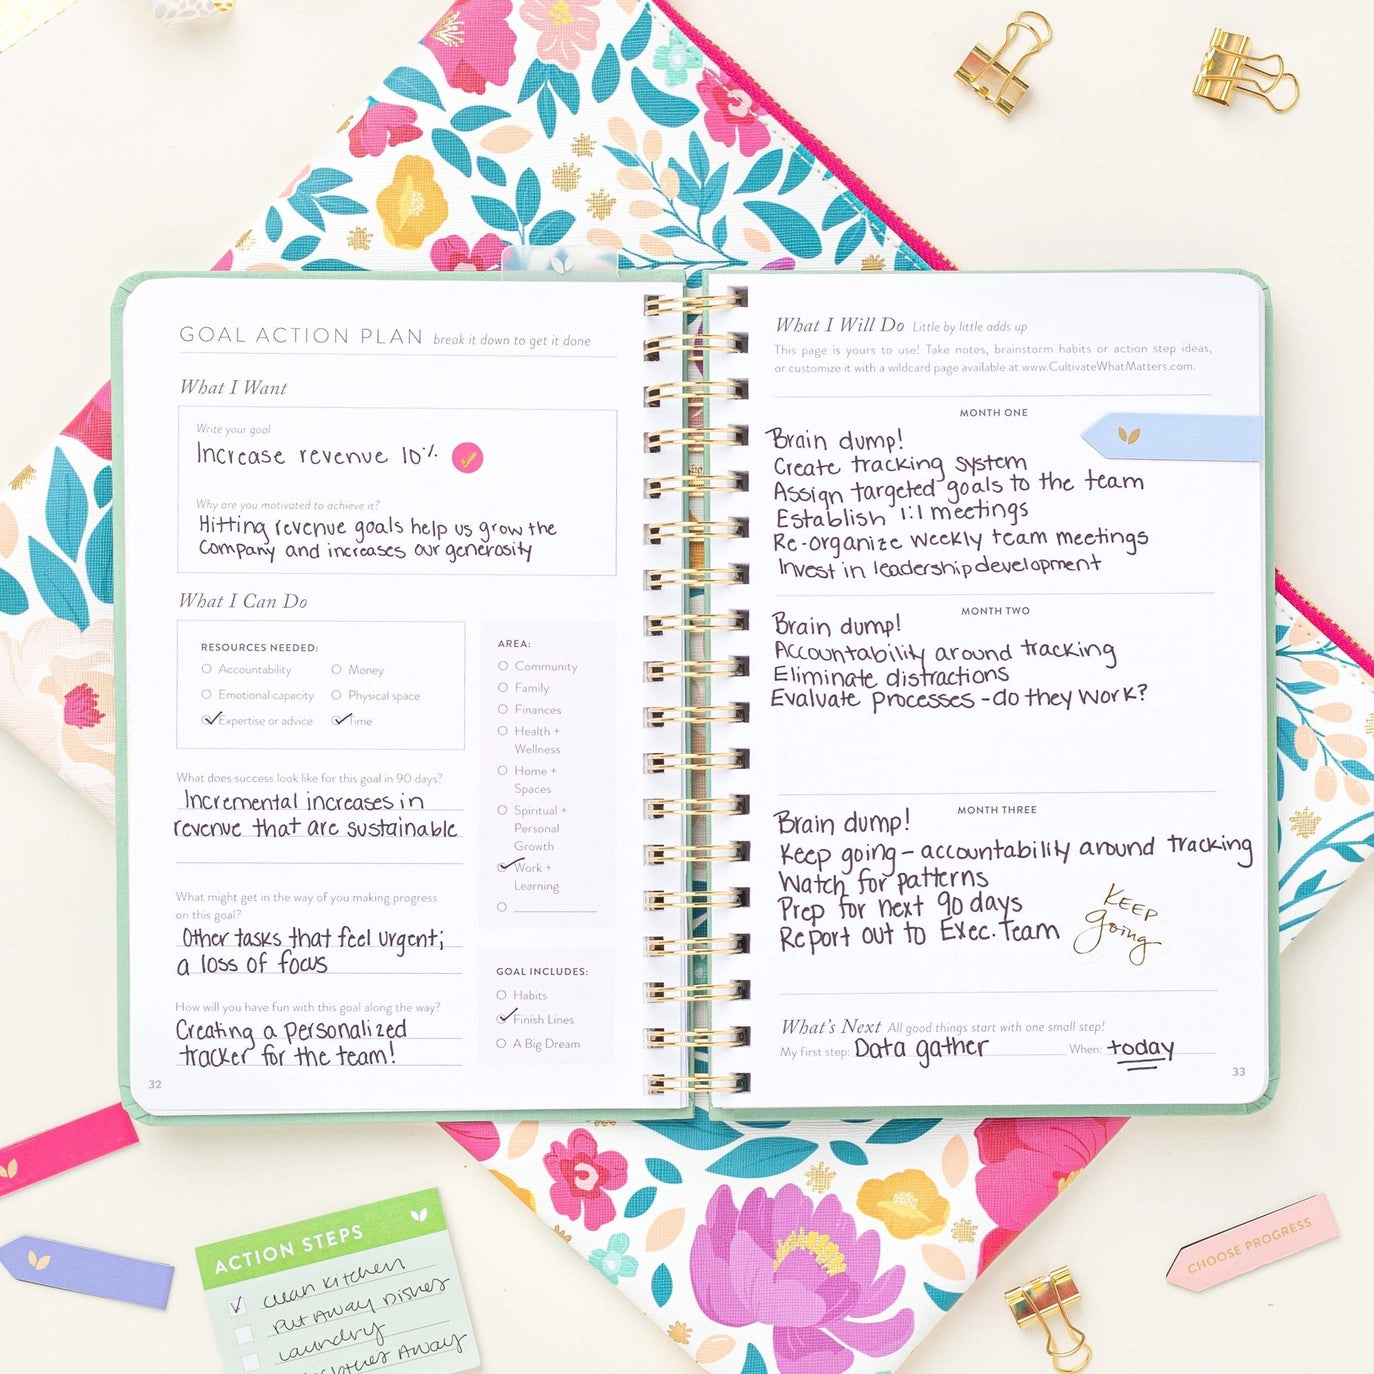 GOAL ACTION PLAN break it down to get it done
What I Want
Write your goal
Increase revenue 10%
Why are you motivated to achieve it?
Hitting revenue goals help us grow the
company and increases our generosity
What I Can Do
RESOURCES NEEDED:
Accountability
Money
Emotional capacity
Physical space
Expertise or advice
Time
What does success look like for this goal in 90 days?
Incremental increases in
revenue that are sustainable
What might get in the way of you making progress
on this goal?
Other tasks that feel urgent;
a loss of focus
How will you have fun with this goal along the way?
Creating a personalized
tracker for the team!
AREA:
Community
Family
Finances
Health +
Wellness
Home +
Spaces
Spiritual +
Personal
Growth
Work +
Learning
GOAL INCLUDES:
Habits
Finish Lines
A Big Dream
32
What I Will Do Little by little adds up
This page is yours to use! Take notes, brainstorm habits or action step ideas,
or customize it with a wildcard page available at www.CultivateWhatMatters.com.
MONTH ONE
Brain dump!
Create tracking system
Assign targeted goals to the team
Establish 1:1 meetings
Re-organize weekly team meetings
Invest in leadership development
MONTH TWO
Brain dump!
Accountability around tracking
Eliminate distractions
Evaluate processes - do they work?
MONTH THREE
Brain dump!
Keep going - accountability around tracking
Watch for patterns
Prep for next 90 days
Report out to Exec. Team
KEEP
going
What's Next All good things start with one small step!
My first step: Data gather When: today
33
ACTION STEPS
clean kitchen
Put Away Dishes
laundry
clothes Away
CHOOSE PROGRESS